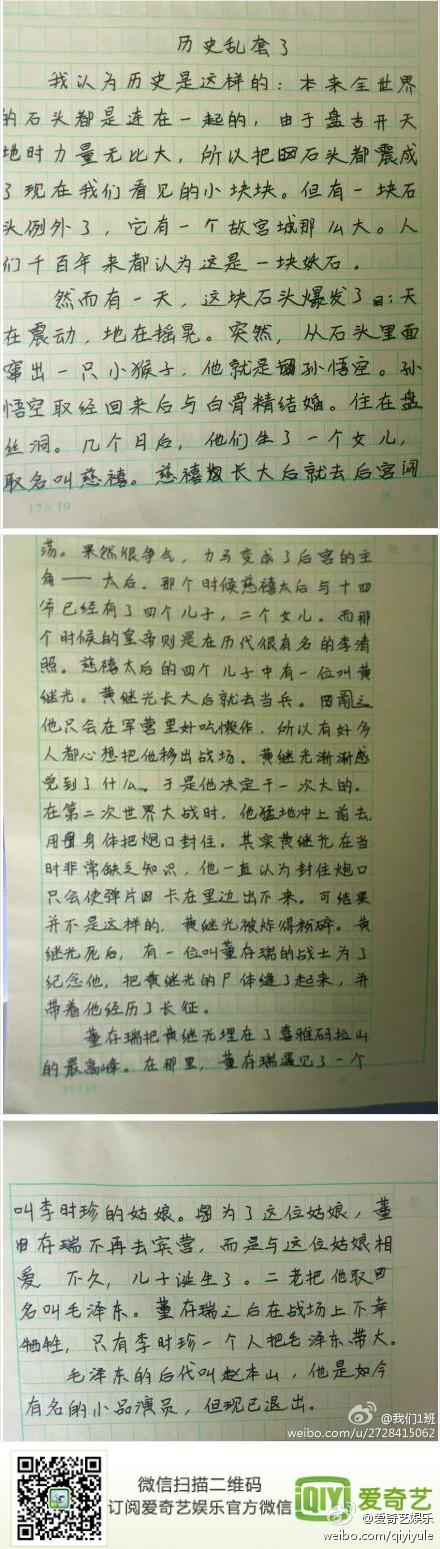 历史乱套了
我认为历史是这样的：本来全世界
的石头都是连在一起的，由于盘古开天
地时力量无比大，所以把石头都震成
了现在我们看见的小块块。但有一块石
头例外了，它有一个故宫城那么大。人
们千百年来都认为这是一块妖石。
然而有一天，这块石头爆发了：天
在震动，地在摇晃。突然，从石头里面
窜出一只小猴子，他就是孙悟空。孙
悟空取经回来后与白骨精结婚。住在盘
丝洞。几个月后，他们生了一个女儿，
取名叫慈禧。慈禧长大后就去后宫闯
17×19
荡。果然很争气，力马变成了后宫的主
角——太后。那个时候慈禧太后与十四
爷已经有了四个儿子，二个女儿。而那
个时候的皇帝则是在历代很有名的李清
照。慈禧太后的四个儿子中有一位叫黄
继光。黄继光长大后就去当兵。
他只会在军营里好吃懒作，所以有好多
人都心想把他移出战场。黄继光渐渐感
觉到了什么。于是他决定干一次大的。
在第二次世界大战时，他猛地冲上前去，
用身体把炮口封住。其实黄继光在当
时非常缺乏知识，他一直认为封住炮口
只会使弹片卡在里边出不来。可结果
并不是这样的，黄继光被炸得粉碎。黄
继光死后，有一位叫董存瑞的战士为了
纪念他，把黄继光的尸体缝了起来，并
带着他经历了长征。
董存瑞把黄继光埋在了喜雅码拉山
的最高峰。在那里，董存瑞遇见了一个
17×19
叫李时珍的姑娘。为了这位姑娘，董
存瑞不再去宾营，而是与这位姑娘相
爱 不久，儿子诞生了。二老把他取
名叫毛泽东。董存瑞之后在战场上不幸
牺牲，只有李时珍一个人把毛泽东带大。
毛泽东的后代叫赵本山，他是如今
有名的小品演员，但现已退出。
@我们1班
weibo.com/u/2728415062
微信扫描二维码
订阅爱奇艺娱乐官方微信
iQIYI 爱奇艺
@爱奇艺娱乐
weibo.com/qiyiyule